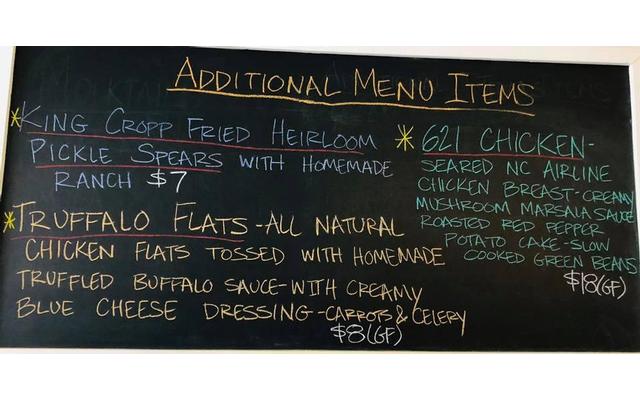 ADDITIONAL MENU ITEMS
*KING CROPP FRIED HEIRLOOM
PICKLE SPEARS WITH HOMEMADE
RANCH $7
*TRUFFALO FLATS-ALL NATURAL
CHICKEN FLATS TOSSED WITH HOMEMADE
TRUFFLED BUFFALO SAUCE-WITH CREAMY
BLUE CHEESE DRESSING-CARROTS & CELERY
$8(GF)
*621 CHICKEN-
SEARED NC AIRLINE
CHICKEN BREAST-CREAMY
MUSHROOM MARSALA SAUCE
ROASTED RED PEPPER
POTATO CAKE-SLOW
COOKED GREEN BEANS
$18(GF)